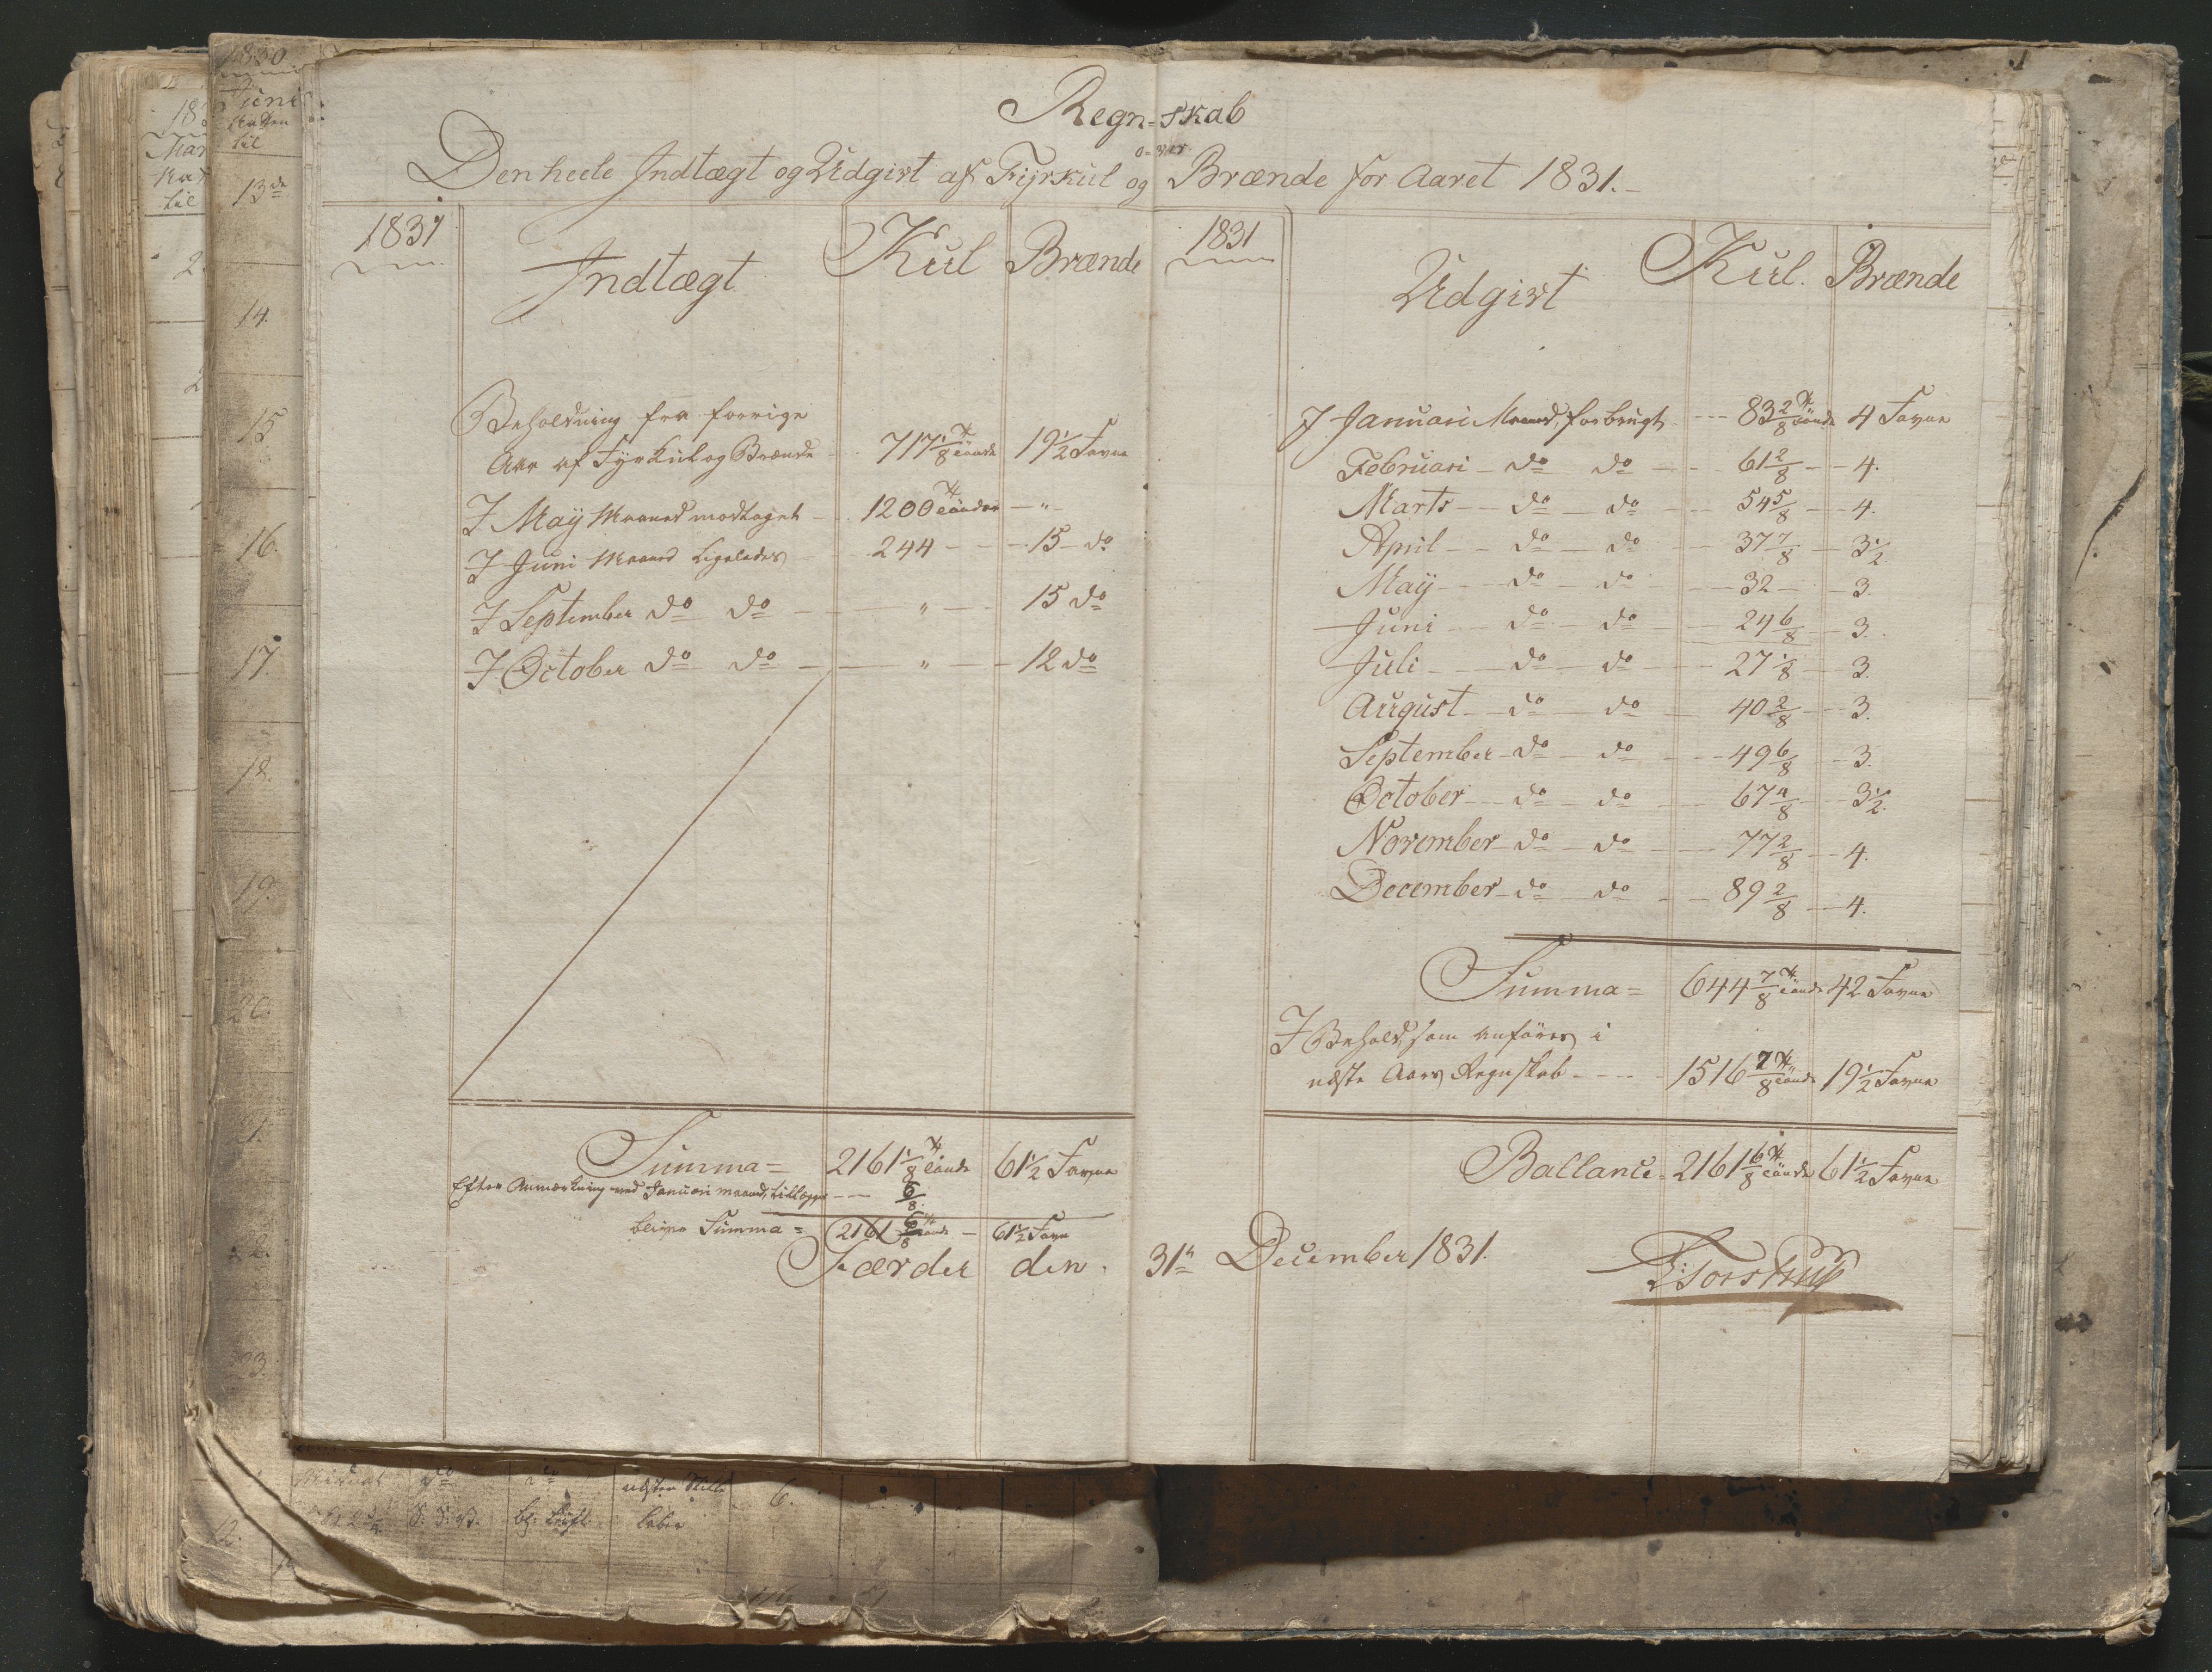 Regn=skab
over
Den heele Indtægt og Udgivt af Fyrkul og Brænde for Aaret 1831.
1831
Indtægt
Kul
Brænde
Beholdning fra forrige
Aar af Fyrkul og Brænde 717 1/8 19 1/2 Favne
I May Maaned modtaget 1200 "
I Juni Maaned Ligeledes 244 15 do
I September do do " 15 do
I October do do " 12 do
Summa= 2161 1/8 61 1/2 Favne
Efter Anmærkning ved Januari maaned, tillægges 6/8
Summa= 2161 6/8 61 1/2 Favne
1831
Udgivt
Kul.
Brænde
I Januari Maaned, forbrugt 83 2/8 4 Favne
Februari do do 61 2/8 4.
Marts do do 54 5/8 4.
April do do 37 7/8 3 1/2
May do do 32 3.
Juni do do 24 6/8 3.
Juli do do 27 1/8 3.
August do do 40 2/8 3.
September do do 49 6/8 3.
October do do 67 4/8 3 1/2.
November do do 77 2/8 4.
December do do 89 2/8 4.
Summa= 644 7/8 42 Favne
I Behold, som anföres i
næste Aars Regnskab 1516 7/8 19 1/2 Favne
Ballance 2161 6/8 61 1/2 Favne
Færder den 31te December 1831.
1830
Juni
til
13de
14.
15
16.
17.
18.
19.
20.
21.
22.
23.